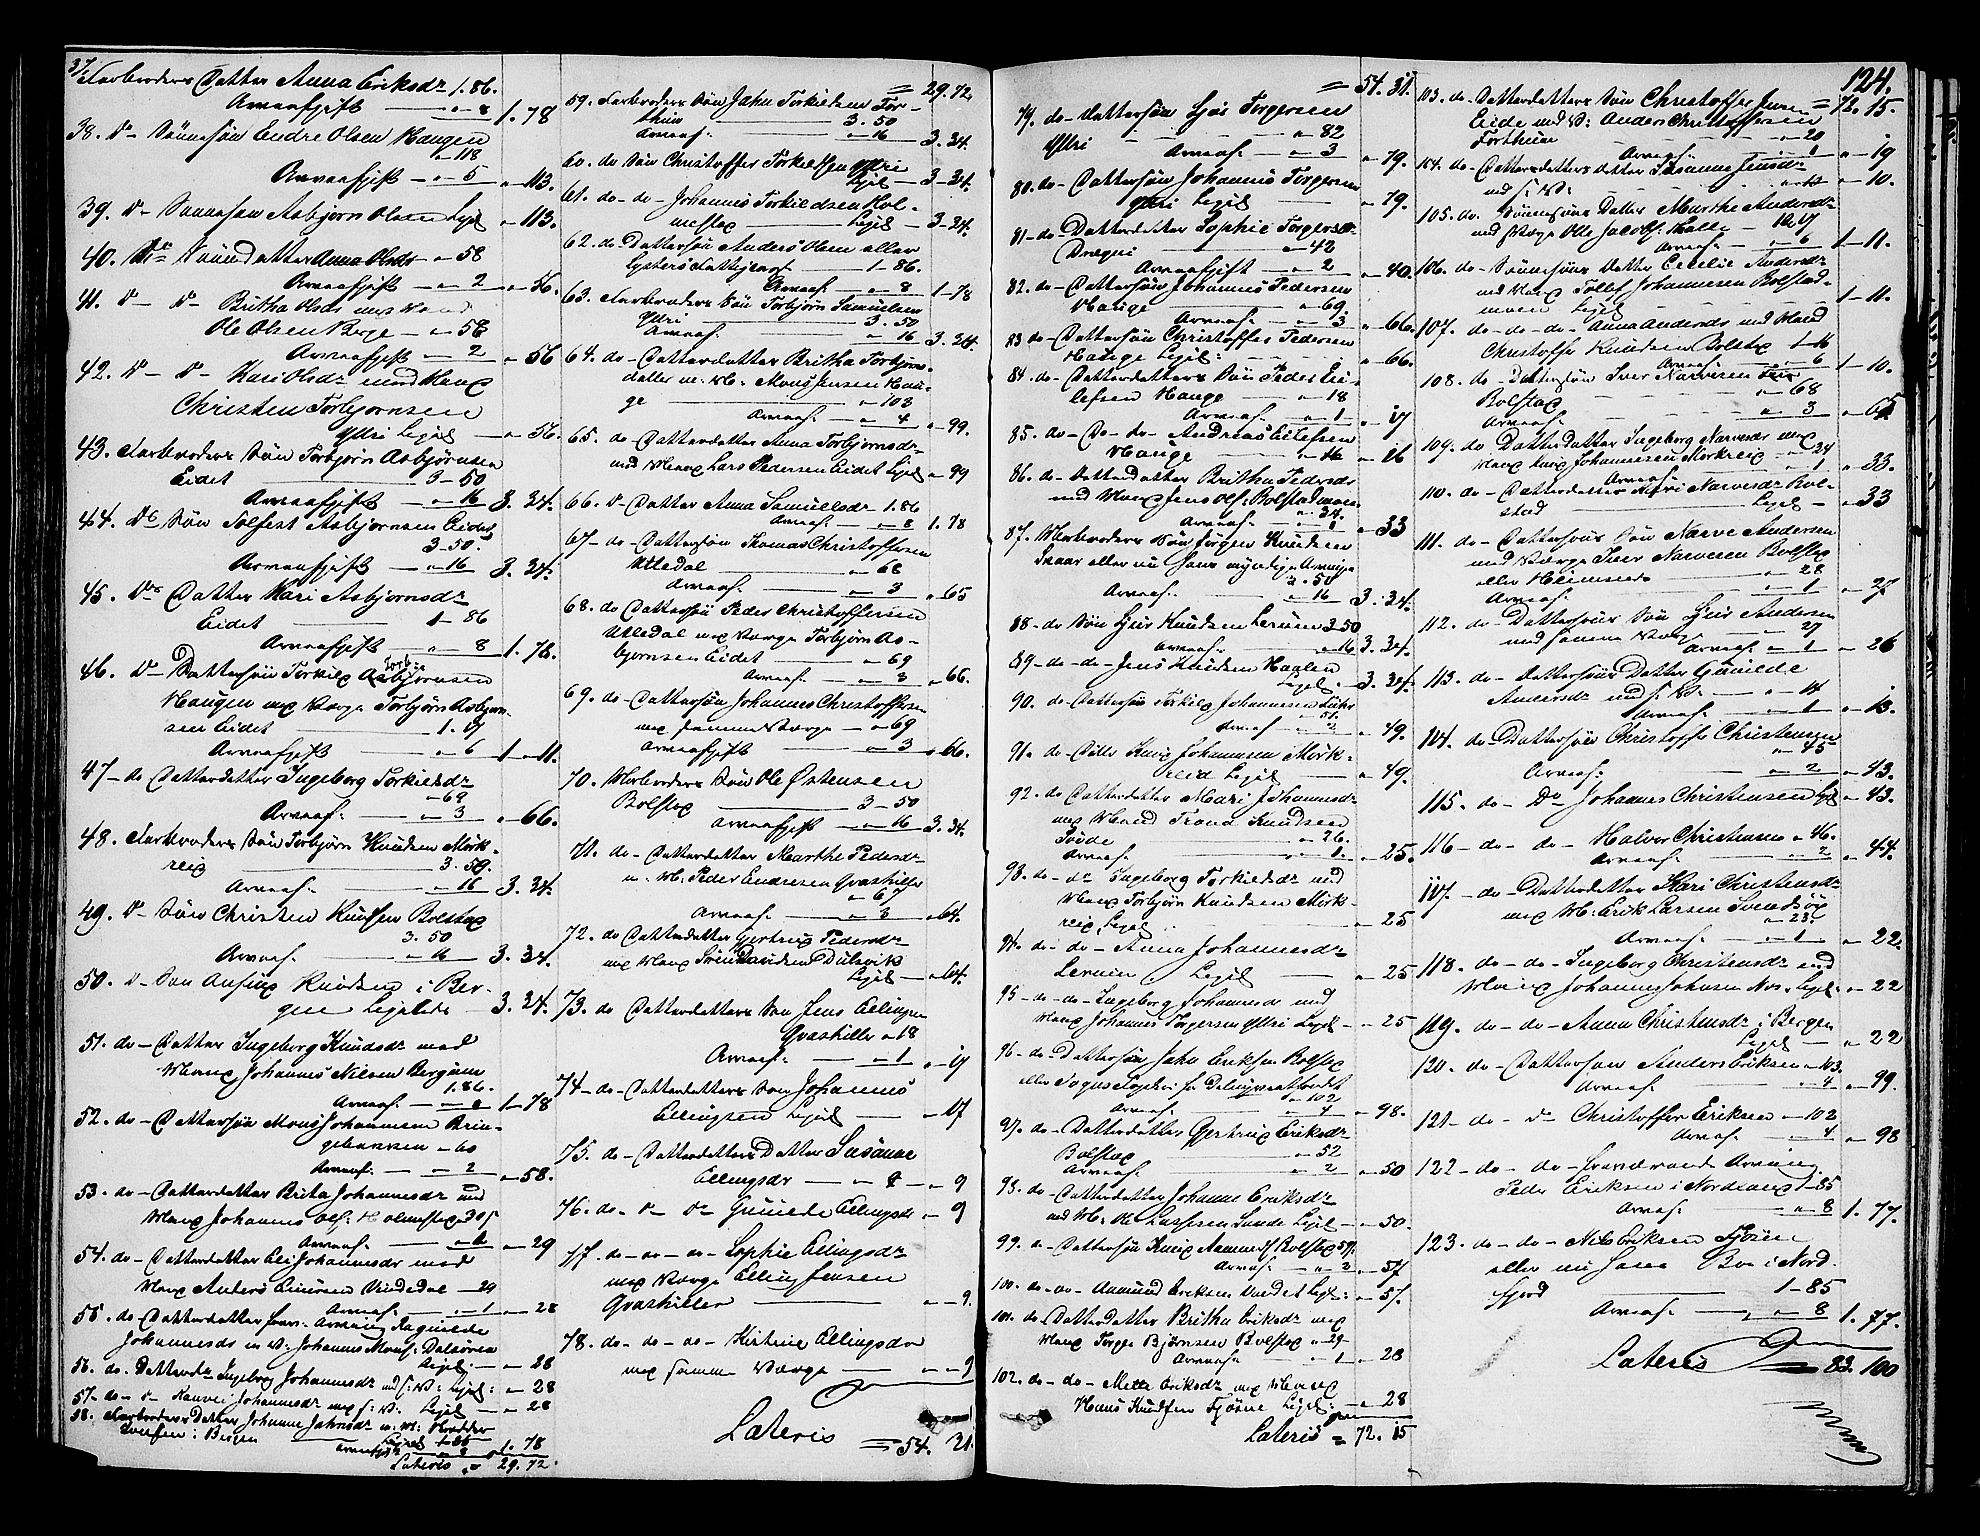 37. Farbroders Datter Anna Eriksdr 1.86.
Arveafgift — " 8 1.78
38. do Sønnesøn Endre Olsen Haugen
" 118
Arveafgift — " 5 " 113.
39. do Sønnesøn Asbjørn Olsen Ligel. " 113.
40. do Sønnedatter Anna Olsdr " 58
Arveafgift — " 2 " 56.
41. do do Britha Olsdr med Mand
Ole Olsen Berge — " 58
Arveafgift — " 2 " 56
42. do do Kari Olsdr med Mand
Christen Torbjørnsen
Ytri Ligel. — " 56.
43. Farbroders Søn Torbjørn Asbjørnsen
Eidet — 3-50
Arveafgift — " 16 3. 34.
44. do Søn Tolfest Asbjørnsen Eidet
3-50.
Arveafgift — " 16 3. 34.
45. do Datter Kari Asbjørnsdr
Eidet — 1-86
Arveafgift " 8 1. 78.
46. do Dattersøn Torkild Asbjørnsen
Haugen med Værge Torbjørn Asbjørn-
sen Eidet — 1. 17
Arveafgift — " 6 1-11.
47- do Datterdatter Ingeborg Torkildsdr
" 69
Arveaf. — " 3 " 66.
48. Farbroders Søn Torbjørn Knudsen Mørk-
reid — 3. 50.
Arveaf. — " 16 3. 34.
49. do Søn Christen Knudsen Bolstad
3. 50
Arveaf. — " 16 3. 34.
50. do Søn Knudsen i Ber-
gen Ligeledes 3. 34.
51. do- Datter Ingeborg Knudsdr med
Mand Johannes Nilsen Bergum
1.86.
Arveaf. — " 8 1-78
52. do- Dattersøn Mons Johannesen Brin-
gebakken " 60
Arveaf. — " 2 " 58.
53. do- Datterdatter Brita Johannesdr med
Mand Johannes Ols. Holmstad " 30
Arveaf. — " 1 " 29
54. do- Datterdatter Eli Johannesdr med
Mand Anders Einersen Vindedal — 29
Arveaf. — " 1 " 28
55. do Datterdatter Ragnilde
Johannesdr m. V. Johannes Mons. Dalsøren
Ligel. — " 28
56. do. Datterdr Ingeborg Johannesdr med s. V. Ligel. " 28
57- do- do Johannesdr med s. V. Ligel — " 28
58. Farbroders Datter Johanne Jahnsdr m. M.
i Bergen Ligel. 1-86
Arveafgift " 8 " 1. 78
Lateris = 29. 72.
= 29. 72.
59. Farbroders Søn Jahn Torkildsen For-
thun — 3. 50
Arveaf. — " 16 3. 34.
60. do Søn Christoffer Torkildsen Ytri
Ligel — 3-34.
61. do- do- Johannes Torkildsen Hol-
mestad — Ligel — 3-34.
62. do Dattersøn Anders Hem eller
— 1-86.
Arveaf. — " 8 1-78
63. Farbroders Søn Torbjørn Samuelsen
Ytri — 3. 50
Arveaf. — " 16 3. 34.
64. do- Datterdatter Britha Torbjørns-
datter m. M. Mons Jensen Hau-
ge — " 103
Arveaf. " 4 " 99.
65. do- Datterdatter Anna Torbjørnsdr
med Mand Lars Pedersen Eidet Ligel " 99
66. do- Datter Anna Samuelsdr 1.86
Arveaf. — " 8 1. 78
67- do- Dattersøn Thomas Christoffersen
Utledal — " 68
Arveaf. — " 3 " 65
68. do Dattersøn Peder Christoffersen
Utledal med Værge Torbjørn As-
bjørnsen Eidet — " 69
Arveaf. — " 3 " 66.
69. do- Dattersøn Johannes Christoffersen
med samme Værge — " 69
Arveafgift — " 3 " 66.
70. Morbroders Søn Ole Østensen
Bolstad — 3-50
Arveafgift — " 16 3. 34.
71. do- Datterdatter Marthe Pedersdr
m. M. Peder Endresen Qvashiller
" 67
Arveaf. — " 3 " 64.
72. do Datterdatter Gjertrud Pedersdr
med Mand Sven Davidsen Dulsvik
Ligel — " 64.
73. do Datterdatters Søn Jens Ellingsen
Qvashiller " 18
Arveaf. — " 1 " 17
74- do- Datterdatters Søn Johannes
Ellingsen Ligel — " 17
75. do- Datterdatters Datter Susanne
Ellingsdr — " 9 — " 9
76. do- do do Gunilde Ellingsdr " 9
77. do- do- do- Sophie Ellingsdr
med Værge Elling Jensen
Qvashiller — " 9.
78. do- do- do- Kirtine Ellingsdr
med samme Værge — " 9
Lateris = 54. 31.
= 54. 31.
79. do- Dattersøn Sjur Torgersen
Ytri — " 82
Arveaf. — " 3 " 79.
80. do- Dattersøn Johannes Torgersen
Ytri Ligel — " 79.
81- do- Datterdatter Sophie Torgersdr
Drægni — " 42
Arveafgift — " 2 " 40.
82. do- Dattersøn Johannes Pedersen
Hauge — " 69.
Arveaf. — " 3 " 66.
83 do- Dattersøn Christoffer Pedersen
Hauge Ligel: " 66.
84. do- Datterdatters Søn Peder Ei-
lefsen Hauge — " 18
Arveaf. — " 1 " 17
85. do- do- do- Andreas Eilefsen
Hauge — " 16 " 16
86. do- Datterdatter Britha Pedersdr
med Mand Jens Ols. Bolstadmoen
" 34.
Arveaf. — " 1 " 33
87. Morbroders Søn Jørgen Knudsen
Skaar eller nu hans myndige Arvinge
3. 50
Arveaf. — " 16 3. 34.
88- do Søn Sjur Knudsen Lerum 3-50
Arveaf. — " 16 3. 34.
89- do- do- Jens Knudsen Haalen
Ligel. — 3. 34.
90. do- Dattersøn Torkild Johannesen
" 51.
Arveaf — " 2 " 49.
91. do- Knud Johannesen Mørk-
reid Ligel — " 49.
92. do Datterdatter Mari Johannesdr
med Mand Trond Knudsen
— " 26.
Arveaf. — " 1. " 25.
93. do- do Ingeborg Torkildsdr med
Mand Torbjørn Knudsen Mørk-
reid Ligel — " 25
94. do- do- Anna Johannesdr
Lerum, Ligel — " 25
95- do- do- Ingeborg Johannesdr med
Mand Johannes Torgersen Ytri Ligel " 25
96- do- Dattersøn Jahn Eriksen Bolstad
eller
" 102
Arveaf. — " 4 " 98.
97. do- Datterdatter Gjertrud Eriksdr
Bolstad " 52
Arveaf. — " 2 " 50
98. do- Datterdatter Johanne Eriksdr
med M. Ole Larssen Sunde Ligel " 50.
99. do- Dattersøn Knud Aamundss. Bolstad 59.
Arveaf. — " 2 " 57
100. do- do- Aamund Eriksen Ligel: " 57.
101. do- Datterdatter Britha Eriksdr med
Mand Torger Bjørnsen Bolstad " 29-
Arveaf. — " 1 " 28
102. do- do- Mette Eriksdr med Mand
Hans Knudsen Fjøsne Ligel: " 28
Lateris = 72. 15
124.
103. do- Datterdatters Søn Christoffer Jensen = 72. 15.
Eide med V: Anders Christoffersen
Forthun — " 20
Arveaf. " 1 " 19
104. do- Datterdatters Datter Susanne Jensdr
med s. V: — " 10.
105. do. Sønnesøns Datter Marthe Andersdr
med Værge Ole Jacobs. Molle 1. 17
Arveaf. — " 6 1-11.
106. do- Sønnesøns Datter Cecilie Andersdr
med Værge Tollef Johannesen Bolstad-
moen Ligel 1-11.
107. do- do- do- Anna Andersdr med Mand
Christoffer Knudsen Bolstad 1-16
Arveaf. — " 6 1-10.
108. do- Dattersøn Iver Narvesen
Bolstad — " 68
Arveaf. " 3 " 65
109. do Datterdatter Ingeborg Narvesdr med
Mand Knud Johannesen Mørkreid " 34
Arveaf. — " 1 " 33.
110. do- Datterdatter Mari Narvesdr Bol-
stad — Ligel — " 33
111. do- Dattersøns Søn Narve Andersen
med Værge Iver Narvesen Bolstad
eller " 28
Arveaf. — " 1 " 27
112. do- Dattersøns Søn Sjur Andersen
med samme Værge — " 27
Arveaf. " 1 " 26
113. do- Dattersøns Datter Gunilde
Andersdr med s. V. — " 14
Arveaf. — " 1 " 13.
114. do- Dattersøn Christoffer Christensen
" 45
Arveaf. — " 2 " 43.
115. do- do Johannes Christensen Ligel " 43.
116- do- do- Halvor Christensen " 46.
Arveaf. — " 2 " 44.
117. do- Datterdatter Kari Christensdr
med M: Erik Larsen
" 23.
Arveaf. — " 1 " 22.
118. do- do- Ingeborg Christensdr med
Mand Johannes Johnsen Næs. Ligel. " 22
119. do- do- Anna Christensdr i Bergen
Ligel — " 22
120. do- Dattersøn Anders Eriksen " 103.
Arveaf. " 4 " 99.
121- do- do Christoffer Eriksen " 102
Arveaf. " 4 " 98
122- do- do- fraværende Arving
Peder Eriksen i Nordland 1-85
Arveaf. — " 8 1. 77.
123. do- do- Nils Eriksen Fjøsne
eller nu hans Bo i Nord-
fjord — 1-85
Arveaf. — " 8 1. 77.
Lateris = 83. 100